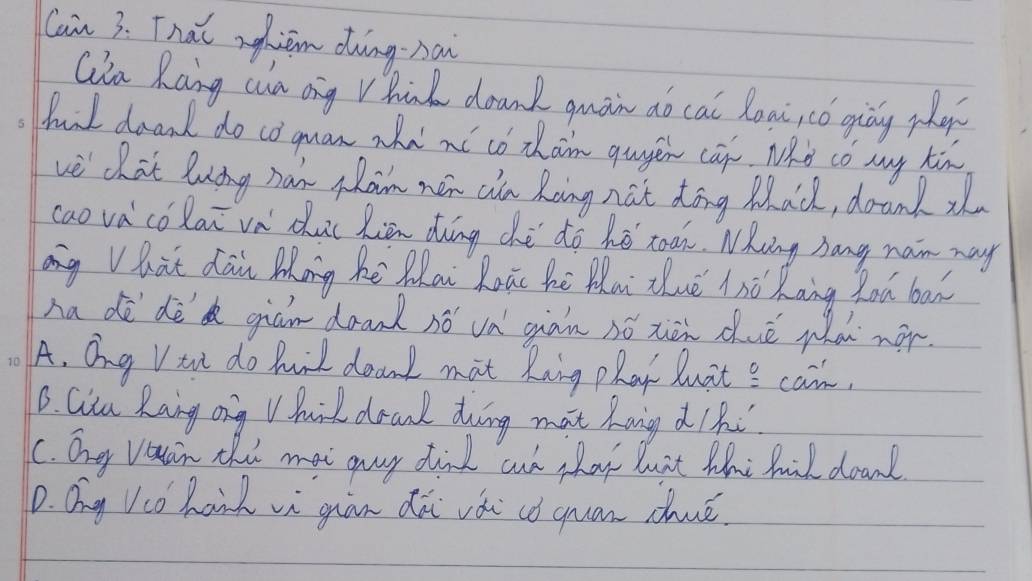 Câu 3: Trắc nghiệm đúng-sai
Cửa hàng của ông V kinh doanh quần áo các loại, có giấy phép
kinh doanh do cơ quan nhà nc có thẩm quyền cấp. Nhờ có uy tín
về chất lượng sản phẩm nên cửa hàng rất đông khách, doanh thu
cao và có lãi và thực hiện đúng chế độ kế toán. Nhưng sang năm nay
ông V bắt đầu không kê khai hoặc kê khai thuế 1 số hàng hoá bán
ra để để giảm doanh số và giảm số tiền thuế phải nộp.
A. Ông V tự do kinh doanh mặt hàng pháp luật o cấm.
B. Cửa hàng ông V kinh doanh đúng mặt hàng đ/kí.
C. Ông V tuân thủ mọi quy định của pháp luật khi kinh doanh.
D. Ông V có hành vi gian dối với cơ quan thuế.